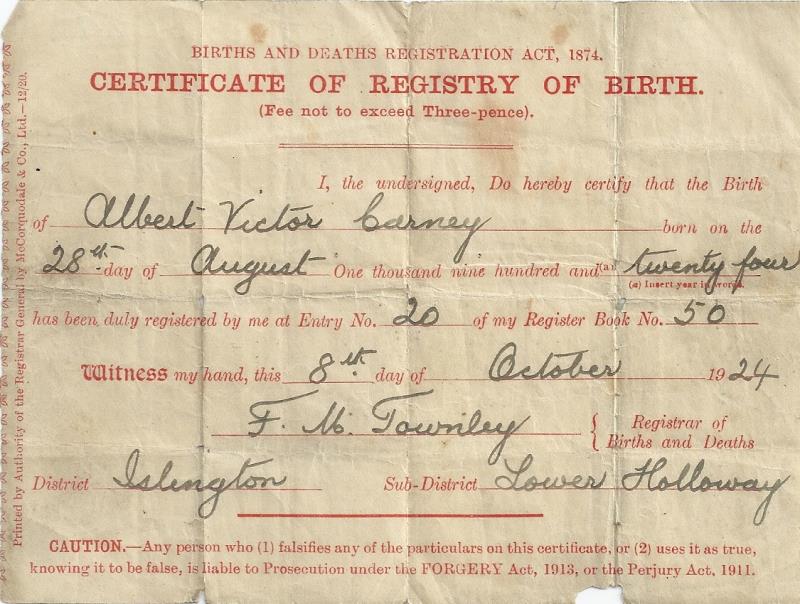 BIRTHS AND DEATHS REGISTRATION ACT, 1874.
CERTIFICATE OF REGISTRY OF BIRTH.
(Fee not to exceed Three-pence).
I, the undersigned, Do hereby certify that the Birth
of Albert Victor Carney born on the
28th day of August One thousand nine hundred and (a) twenty four
(a) Insert year in words.
has been duly registered by me at Entry No. 20 of my Register Book No. 50
Witness my hand, this 8th day of October 1924
F. M. Townley { Registrar of
Births and Deaths
District Islington Sub-District Lower Holloway
CAUTION.—Any person who (1) falsifies any of the particulars on this certificate, or (2) uses it as true,
knowing it to be false, is liable to Prosecution under the FORGERY Act, 1913, or the Perjury Act, 1911.
Printed by Authority of the Registrar General by McCorquodale & Co., Ltd.—12/20.